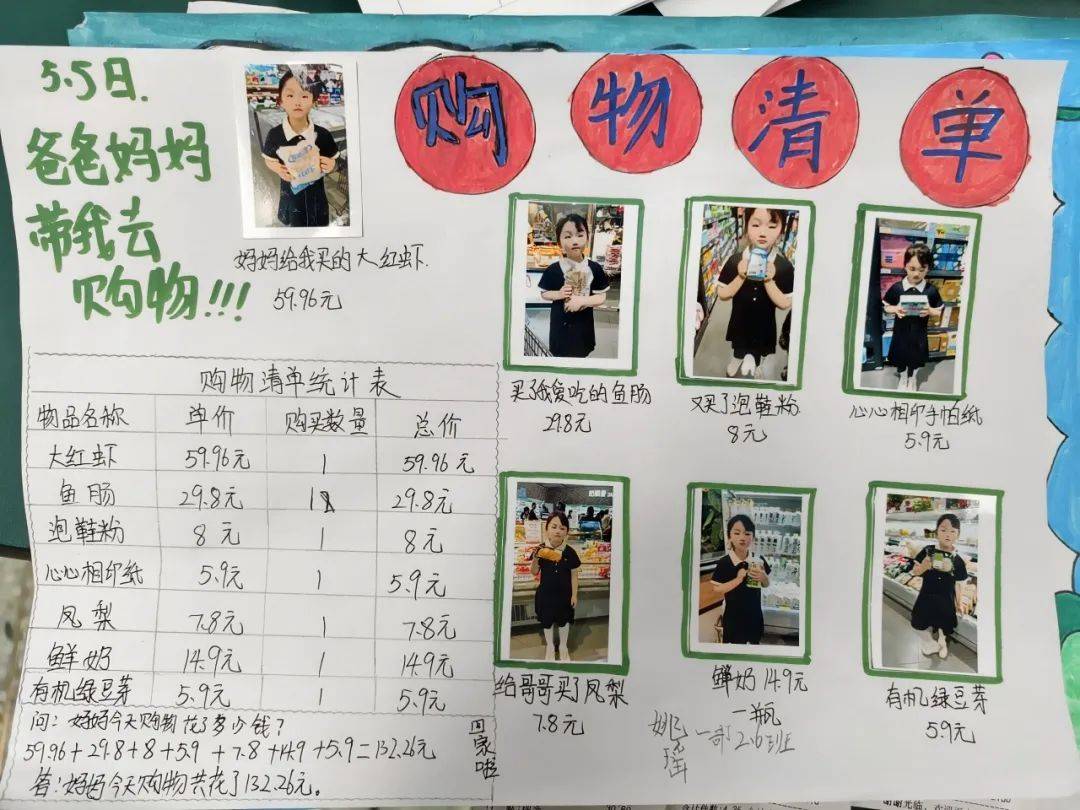 5.5日.
爸爸妈妈
带我去
购物!!!
购物清单
妈妈给我买的大红虾.
59.96元
买了我爱吃的鱼肠
29.8元
又买了泡鞋粉
8元
心心相印手帕纸
5.9元
给哥哥买了凤梨
7.8元
鲜奶14.9元
一瓶
有机绿豆芽
5.9元
购物清单统计表
物品名称 单价 购买数量 总价
大红虾 59.96元 1 59.96元
鱼肠 29.8元 1 29.8元
泡鞋粉 8元 1 8元
心心相印纸 5.9元 1 5.9元
凤梨 7.8元 1 7.8元
鲜奶 14.9元 1 14.9元
有机绿豆芽 5.9元 1 5.9元
问:妈妈今天购物花了多少钱?
59.96+29.8+8+5.9+7.8+14.9+5.9=132.26元
答:妈妈今天购物共花了132.26元。
回家啦
姚瑶 一部2.6班